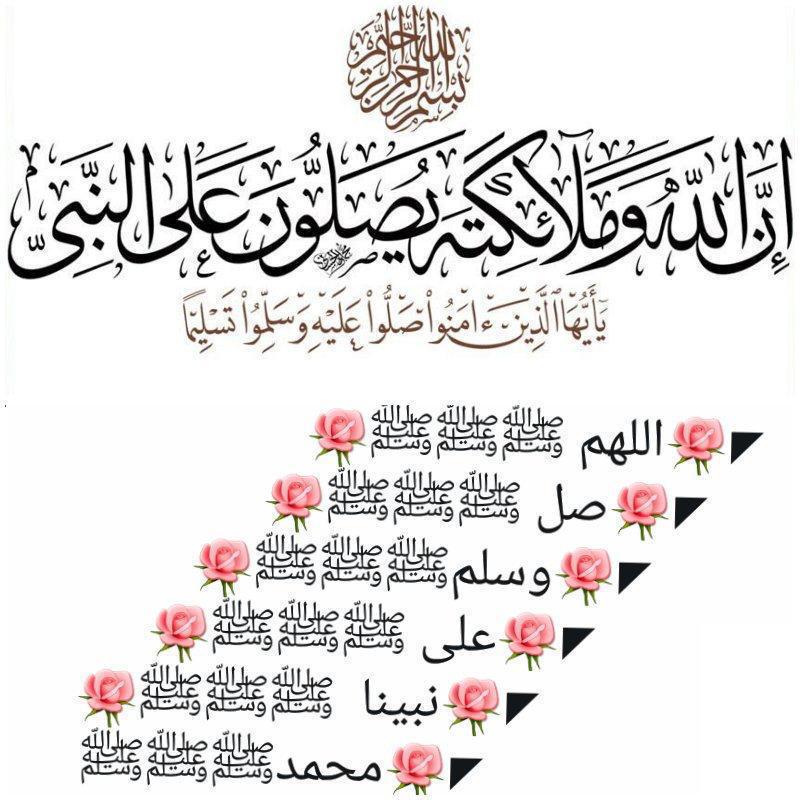 بسم الله الرحمن الرحيم
إِنَّ اللَّهَ وَمَلَآئِكَتَهُ يُصَلُّونَ عَلَى النَّبِيِّ
يَٰٓأَيُّهَا الَّذِينَ ءَامَنُوا۟ صَلُّوا۟ عَلَيْهِ وَسَلِّمُوا۟ تَسْلِيمًا
◤🌹اللهم ﷺ ﷺ ﷺ🌹
◤🌹صل ﷺ ﷺ ﷺ🌹
◤🌹وسلم ﷺ ﷺ ﷺ🌹
◤🌹على ﷺ ﷺ ﷺ🌹
◤🌹نبينا ﷺ ﷺ ﷺ🌹
◤🌹محمد ﷺ ﷺ ﷺ